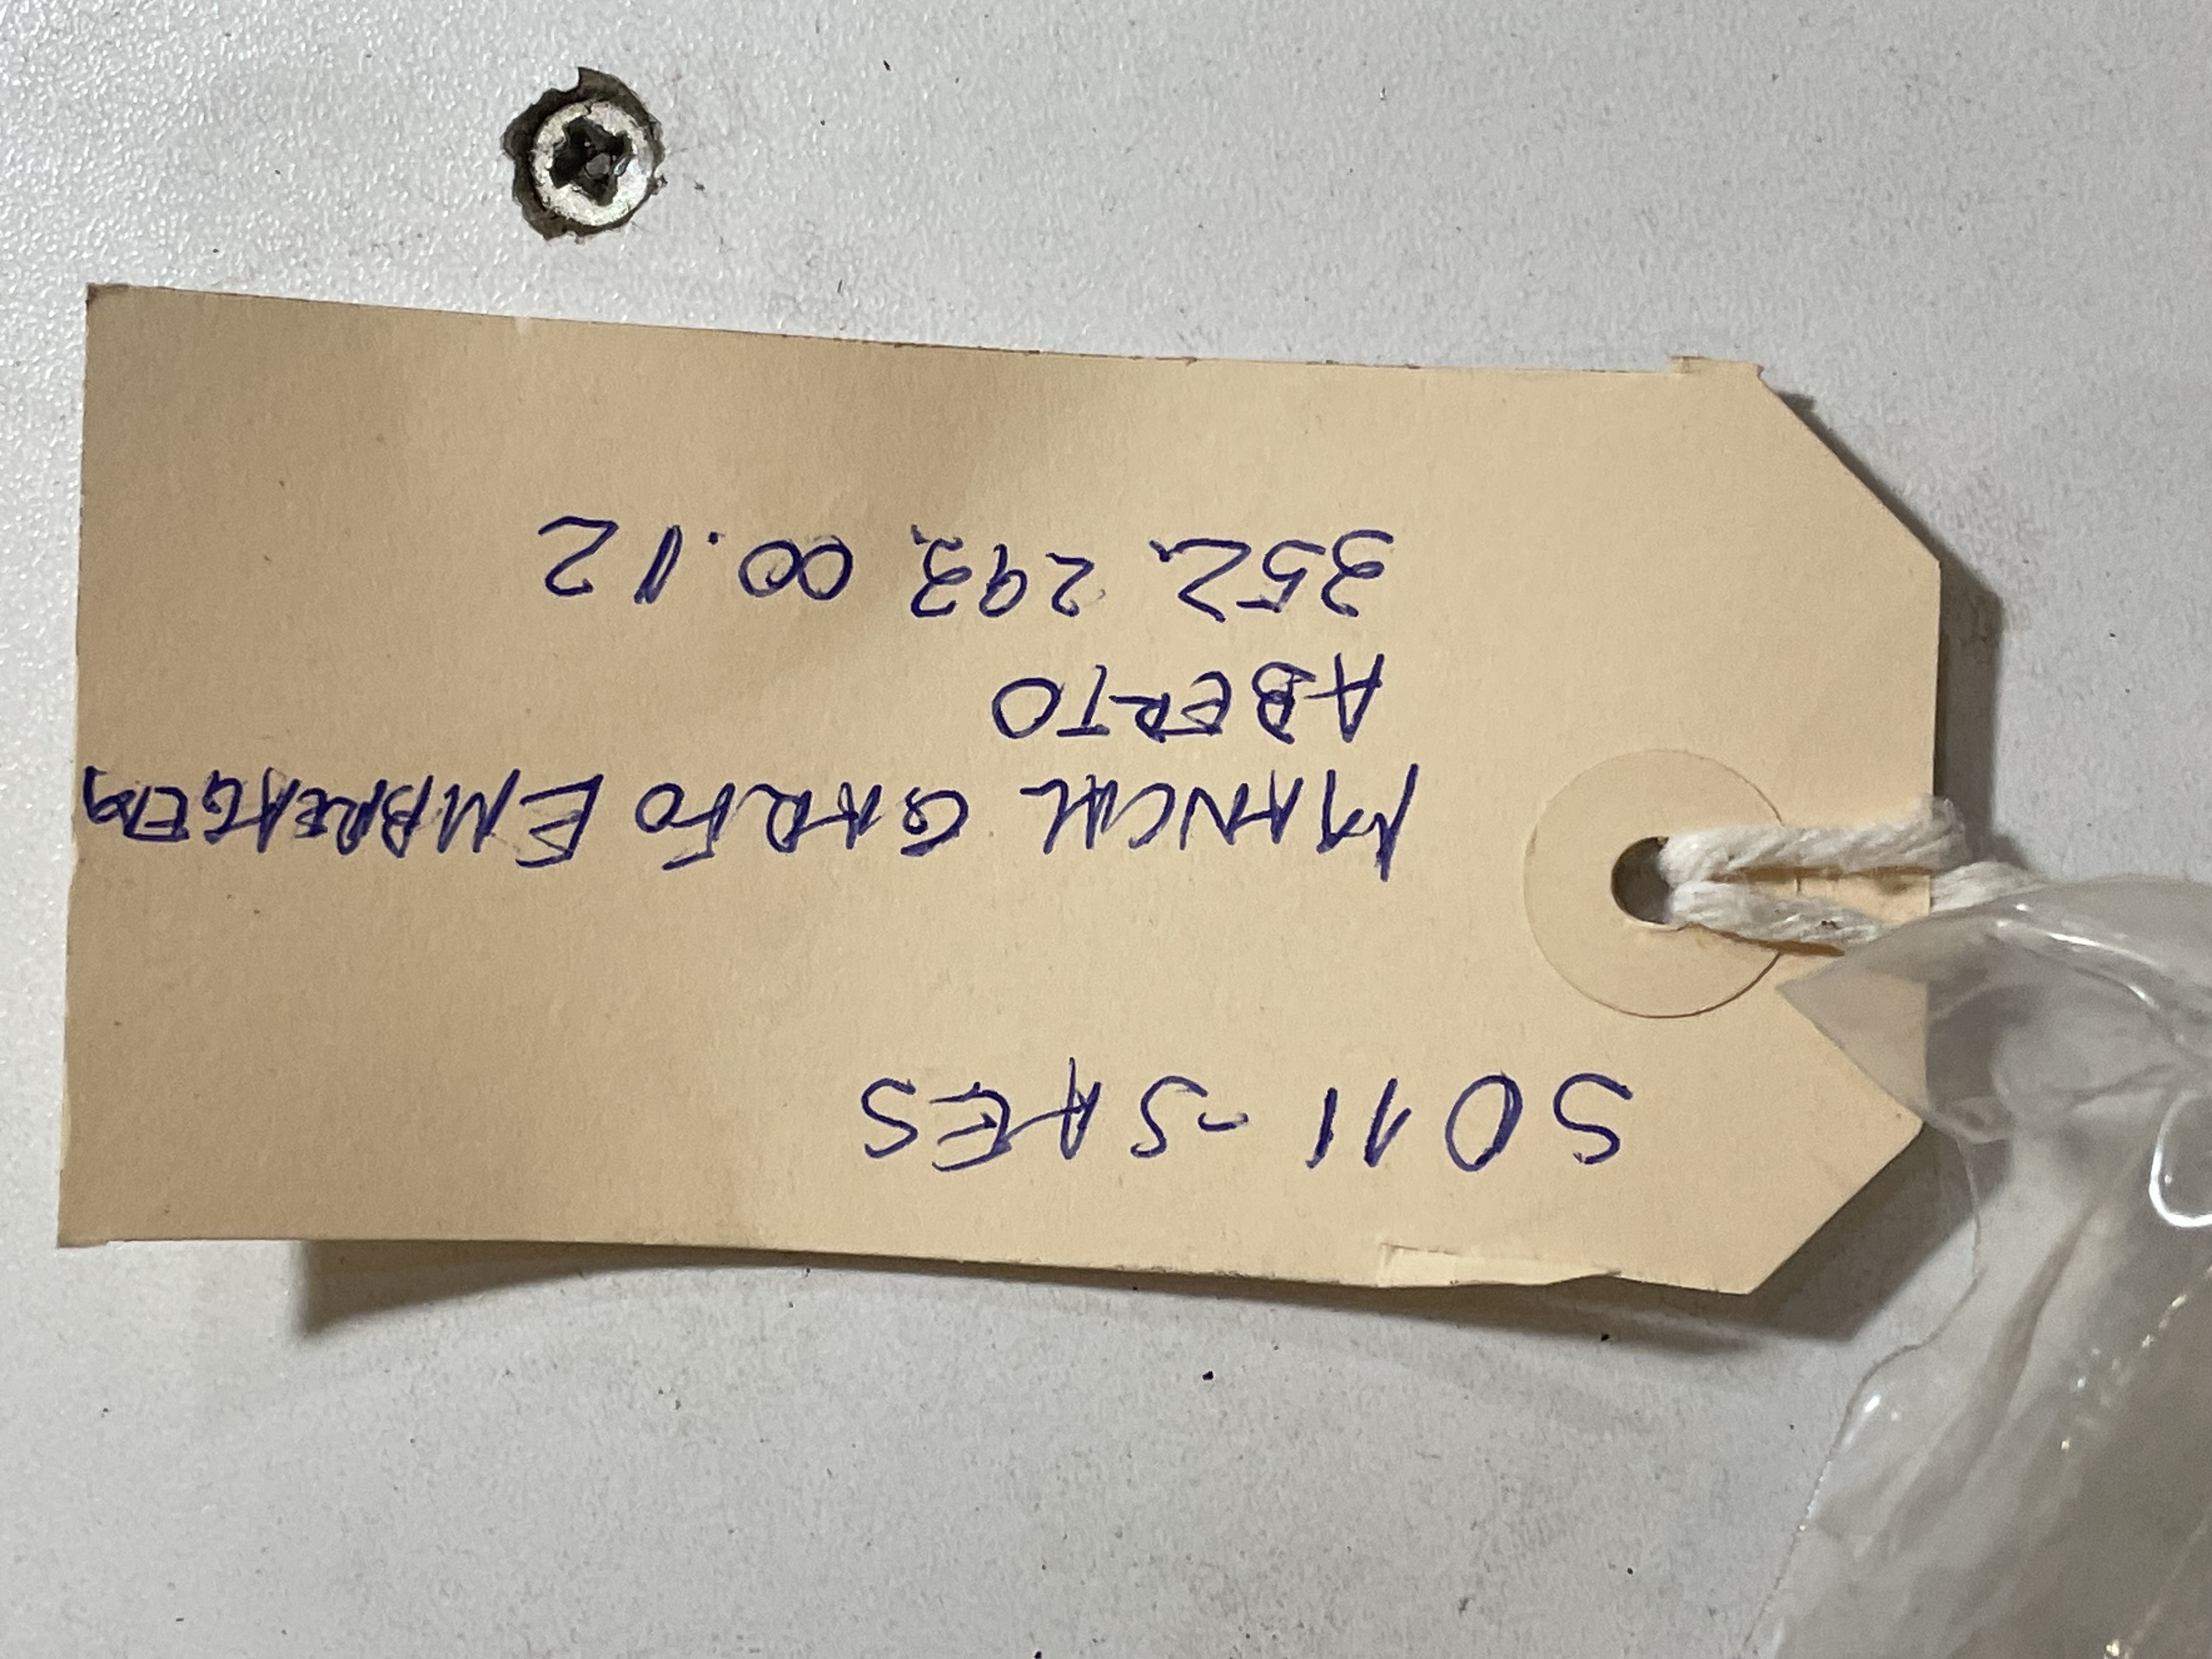 5011 - SAES
MANCAL GARFO EMBREAGEM
ABERTO
352.293.00.12